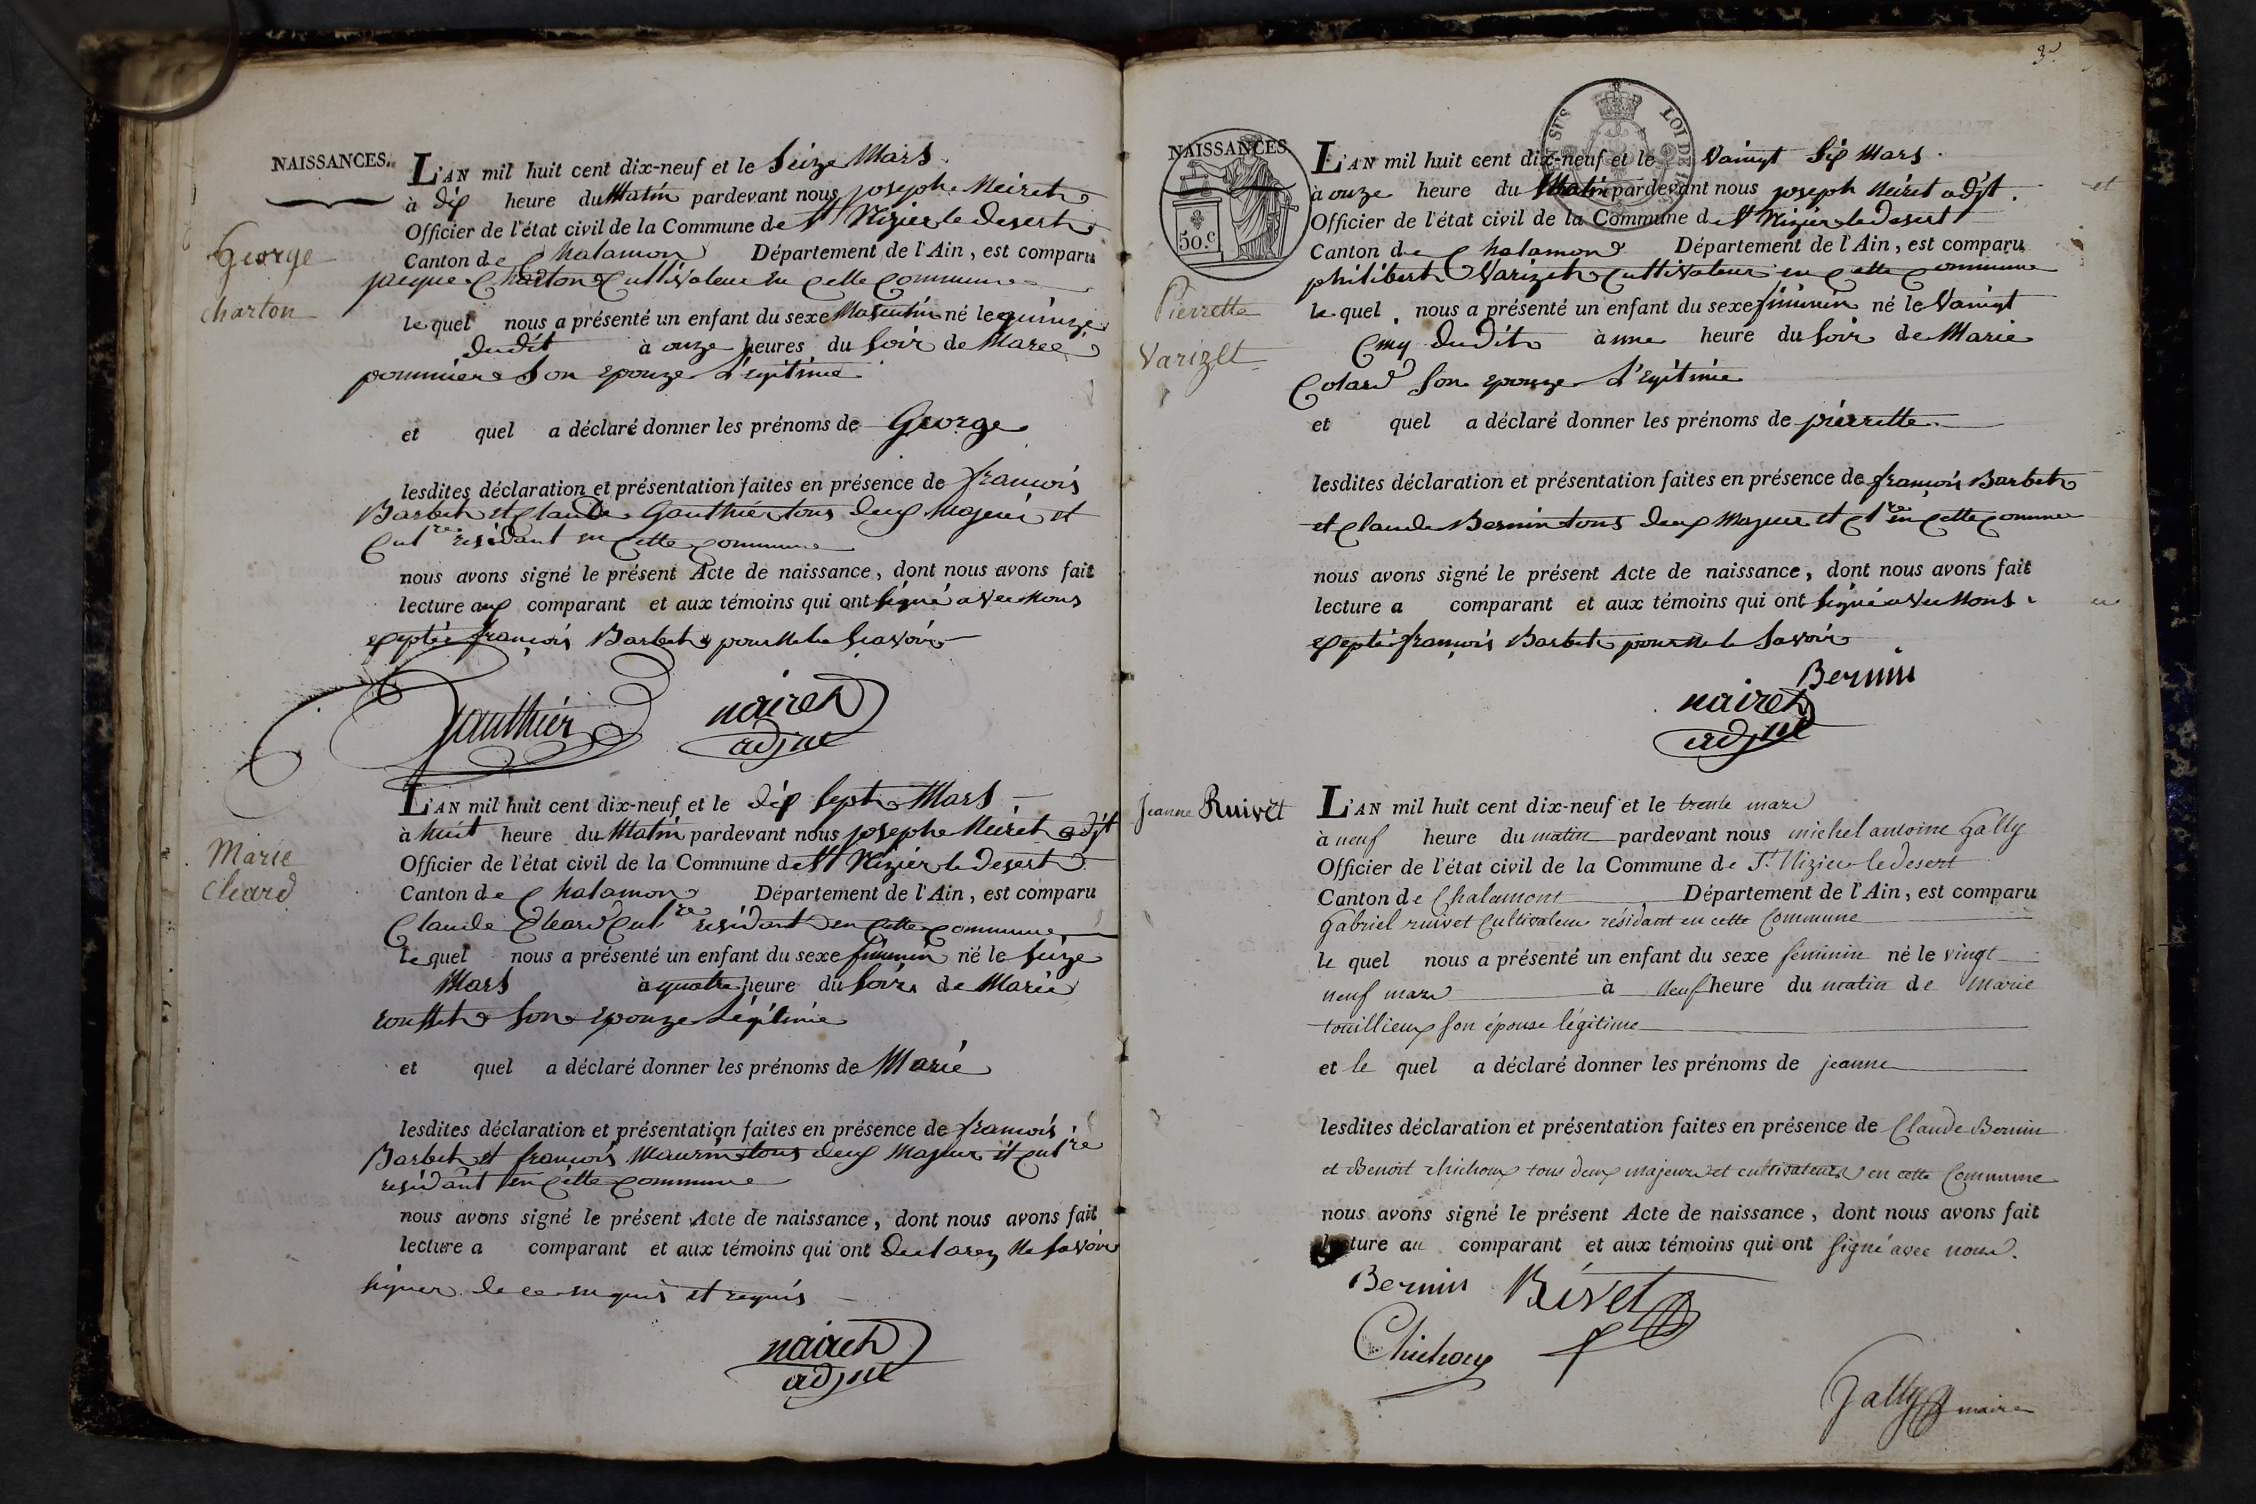 NAISSANCES.
George
charton
L'AN mil huit cent dix-neuf et le Seize Mars
à dix heure du Matin pardevant nous joseph Neiret
Officier de l'état civil de la Commune de St Nizier le desert
Canton de Chalamon Département de l'Ain, est comparu
jacque Charton Cultivateur en Cette Commune
le quel nous a présenté un enfant du sexe Masculin né le quinze
dudit à onze heures du Soir de Marie
pommier Son epouze L'egitime
et quel a déclaré donner les prénoms de George
lesdites déclaration et présentation faites en présence de francois
Barbet et Claude Gauthier tous deux Majeur et
Cultre résidant en Cette Commune
nous avons signé le présent Acte de naissance, dont nous avons fait
lecture aux comparant et aux témoins qui ont Signé avec Nous
exeptée françois Barbet pour Ne le Scavoir
Gauthier nairet
adjnt
Marie
Cleard
L'AN mil huit cent dix-neuf et le dix Sept Mars
à huit heure du Matin pardevant nous joseph Neiret adjt
Officier de l'état civil de la Commune de St Nizier le desert
Canton de Chalamon Département de l'Ain, est comparu
Claude Cleard Cultre résidant en Cette Commune
le quel nous a présenté un enfant du sexe féminin né le Seize
Mars à quatre heure du Soir de Marie
rousset Son Epouze Légitime
et quel a déclaré donner les prénoms de Marie
lesdites déclaration et présentation faites en présence de francois
Barbet et francois Maurin tous deux Majeur et Cultre
résidant en Cette Commune
nous avons signé le présent Acte de naissance, dont nous avons fait
lecture a comparant et aux témoins qui ont declarez Ne Savoir
Signer de ce enquis et requis
nairet
adjnt
3
NAISSANCES.
50.c
SUS LOI DE
Pierrette
Varizet
L'AN mil huit cent dix-neuf et le Vaingt Six Mars
à onze heure du Matin pardevant nous joseph Neiret adjt.
Officier de l'état civil de la Commune de St Nizier le desert
Canton de Chalamon Département de l'Ain, est comparu
philibert Varizet Cultivateur en Cette Commune
le quel nous a présenté un enfant du sexe féminin né le Vaingt
Cinq dudit à une heure du Soir de Marie
Colard Son epouze L'egitime
et quel a déclaré donner les prénoms de pierrette
lesdites déclaration et présentation faites en présence de francois Barbet
et Claude Bernin tous deux Majeur et Cltre en Cette Commune
nous avons signé le présent Acte de naissance, dont nous avons fait
lecture a comparant et aux témoins qui ont Signé avec Nous
exeptée francois Barbet pour Ne le Savoir
Bernin
nairet
adjnt
Jeanne Ruivet
L'AN mil huit cent dix-neuf et le trente mars
à neuf heure du matin pardevant nous michel antoine Gally
Officier de l'état civil de la Commune de St. Nizier le desert
Canton de Chalamont Département de l'Ain, est comparu
Gabriel ruivet Cultivateur résidant en cette Commune
le quel nous a présenté un enfant du sexe féminin né le vingt
neuf mars à neuf heure du matin de Marie
touillieux Son épouse légitime
et le quel a déclaré donner les prénoms de jeanne
lesdites déclaration et présentation faites en présence de Claude Bernin
et Benoit Chichoux tous deux majeurs et cultivateurs en cette Commune
nous avons signé le présent Acte de naissance, dont nous avons fait
lecture au comparant et aux témoins qui ont Signé avec nous.
Bernin Rivet
Chichoux
Gally maire